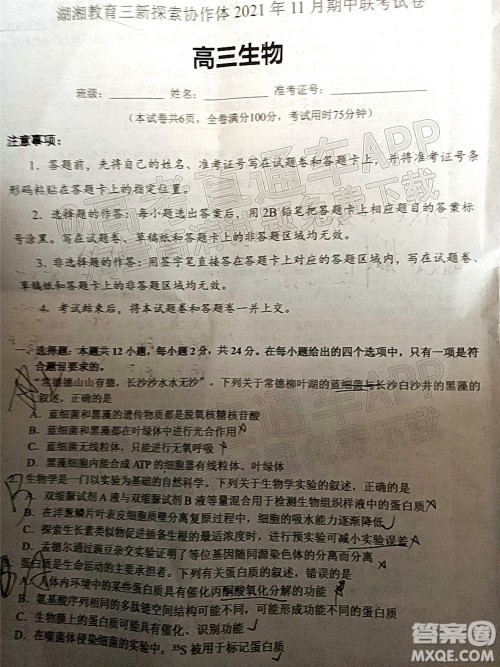 湖湘教育三新探索协作体2021年11月期中联考试卷
高三生物
班级：________ 姓名：________ 准考证号：________
（本试卷共6页，全卷满分100分，考试用时75分钟）
注意事项：
1．答题前，先将自己的姓名、准考证号写在试题卷和答题卡上，并将准考证号条
形码粘贴在答题卡上的指定位置。
2．选择题的作答：每小题选出答案后，用2B铅笔把答题卡上对应题目的答案标
号涂黑。写在试题卷、草稿纸和答题卡上的非答题区域均无效。
3．非选择题的作答：用签字笔直接答在答题卡上对应的答题区域内。写在试题卷、
草稿纸和答题卡上的非答题区域均无效。
4．考试结束后，将本试题卷和答题卷一并上交。
一、选择题：本题共12小题，每小题2分，共24分。在每小题给出的四个选项中，只有一项是符
合题目要求的。
“常德德山山有德，长沙沙水水无沙”。下列关于常德柳叶湖的蓝细菌与长沙白沙井的黑藻的
叙述，正确的是
A．蓝细菌和黑藻的遗传物质都是脱氧核糖核苷酸
B．蓝细菌和黑藻都在叶绿体中进行光合作用
C．蓝细菌无线粒体，只能进行无氧呼吸
D．黑藻细胞内能合成ATP的细胞器有线粒体、叶绿体
生物学是一门以实验为基础的自然科学。下列关于生物学实验的叙述，正确的是
A．双缩脲试剂A液与双缩脲试剂B液等量混合用于检测生物组织样液中的蛋白质
B．在洋葱鳞片叶表皮细胞质壁分离复原过程中，细胞的吸水能力逐渐降低
C．探索生长素类似物促进插条生根的最适浓度时，进行预实验可减小实验误差
D．孟德尔通过豌豆杂交实验证明了等位基因随同源染色体的分离而分离
蛋白质是生命活动的主要承担者。下列有关蛋白质的叙述，错误的是
A．人体内环境中的某些蛋白质具有催化丙酮酸氧化分解的功能
B．氨基酸序列相同的多肽链空间结构可能不同，功能可能不同
C．生物膜上的蛋白质可能具有催化、识别功能
D．在噬菌体侵染细菌的实验中，³⁵S被用于标记蛋白质
答案圈
MXQE.COM